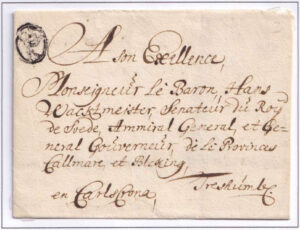 A son Exellence,
Monseigneur Lé Baron, Hans
Wacktmeister, Senateur du Roy
de Svede, Ammiral General, et Ge-
neral Gouverneur, de lé Provinces
Callmare, et Bleking,
en Carlscrona,